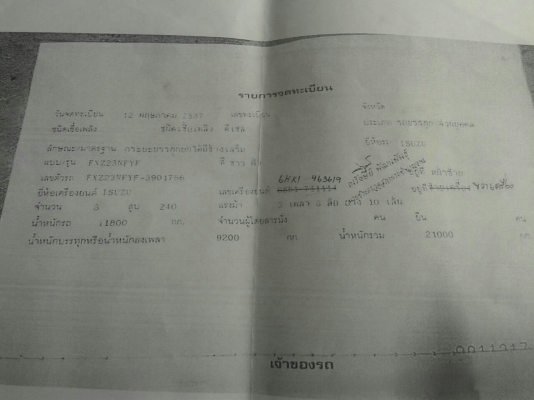 รายการจดทะเบียน
วันจดทะเบียน 12 พฤษภาคม 2537 เลขทะเบียน จังหวัด
ชนิดเชื้อเพลิง ดีเซล ประเภท รถบรรทุกส่วนบุคคล
ลักษณะ/มาตรฐาน กระบะบรรทุก ยี่ห้อรถ ISUZU
แบบ/รุ่น FXZ23NFYF สี ขาว
เลขตัวรถ FXZ23NFYF-3901756 อยู่ที่ หน้าซ้าย
ยี่ห้อเครื่องยนต์ ISUZU เลขเครื่องยนต์ 6HK1 463619 อยู่ที่
จำนวน สูบ 240 แรงม้า 3 เพลา 8 ล้อ ยาง 10 เส้น
น้ำหนักรถ 11800 กก. จำนวนผู้โดยสารนั่ง คน ยืน คน
น้ำหนักบรรทุกหรือน้ำหนักลงเพลา 9200 กก. น้ำหนักรวม 21000 กก.
เจ้าของรถ